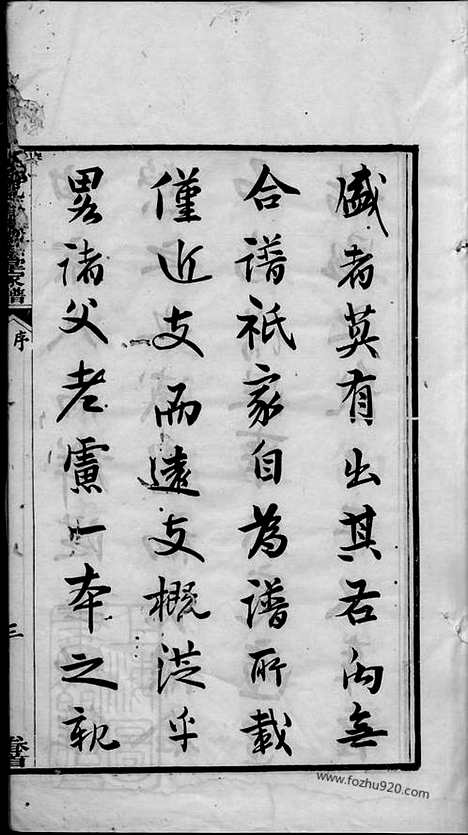 盛者莫有出其右而無
合譜祇家自為譜所載
僅近支而遠支概從乎
畧諸父老慮一本之親
家譜
序
三
www.fozhu920.com